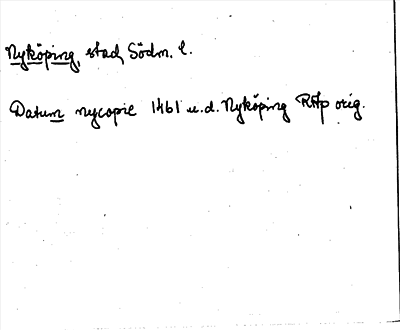 Nyköping, stad, Södm. l.
Datum nycopie 1461 u.d. Nyköping RAp orig.